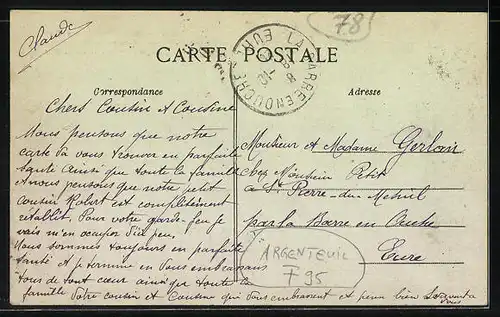 Claude
78
CARTE POSTALE
LA BARRE EN OUCHE
EURE
Correspondance
Adresse
Chers Cousin et Cousine
Nous pensons que notre
carte va vous trouver en parfaite
santé ainsi que toute la famille
et nous pensons que notre petit
cousin Robert est complètement
rétablit. Pour votre garde-feu je
vais m'en occuper d'ici peu.
Nous sommes toujours en parfaite
santé et je termine en vous embrassant
tous de tout cœur ainsi que toute la
famille Votre cousin et Cousine qui vous embrassent et pense bien
Monsieur et Madame
chez Monsieur Petit
a St Pierre-du-Mesnil
par la Barre en Ouche
Eure
ARGENTEUIL
F 95